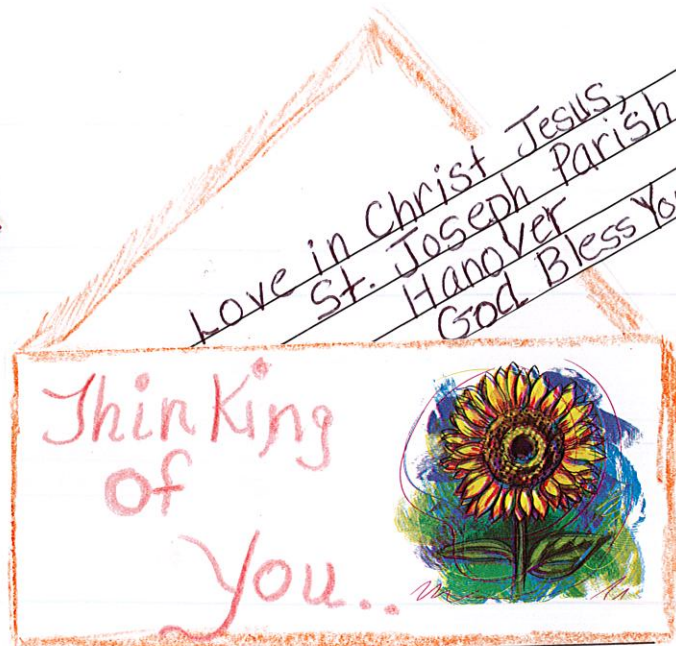 Love in Christ Jesus,
St. Joseph Parish
Hanover
God Bless You
Thinking
of
You..